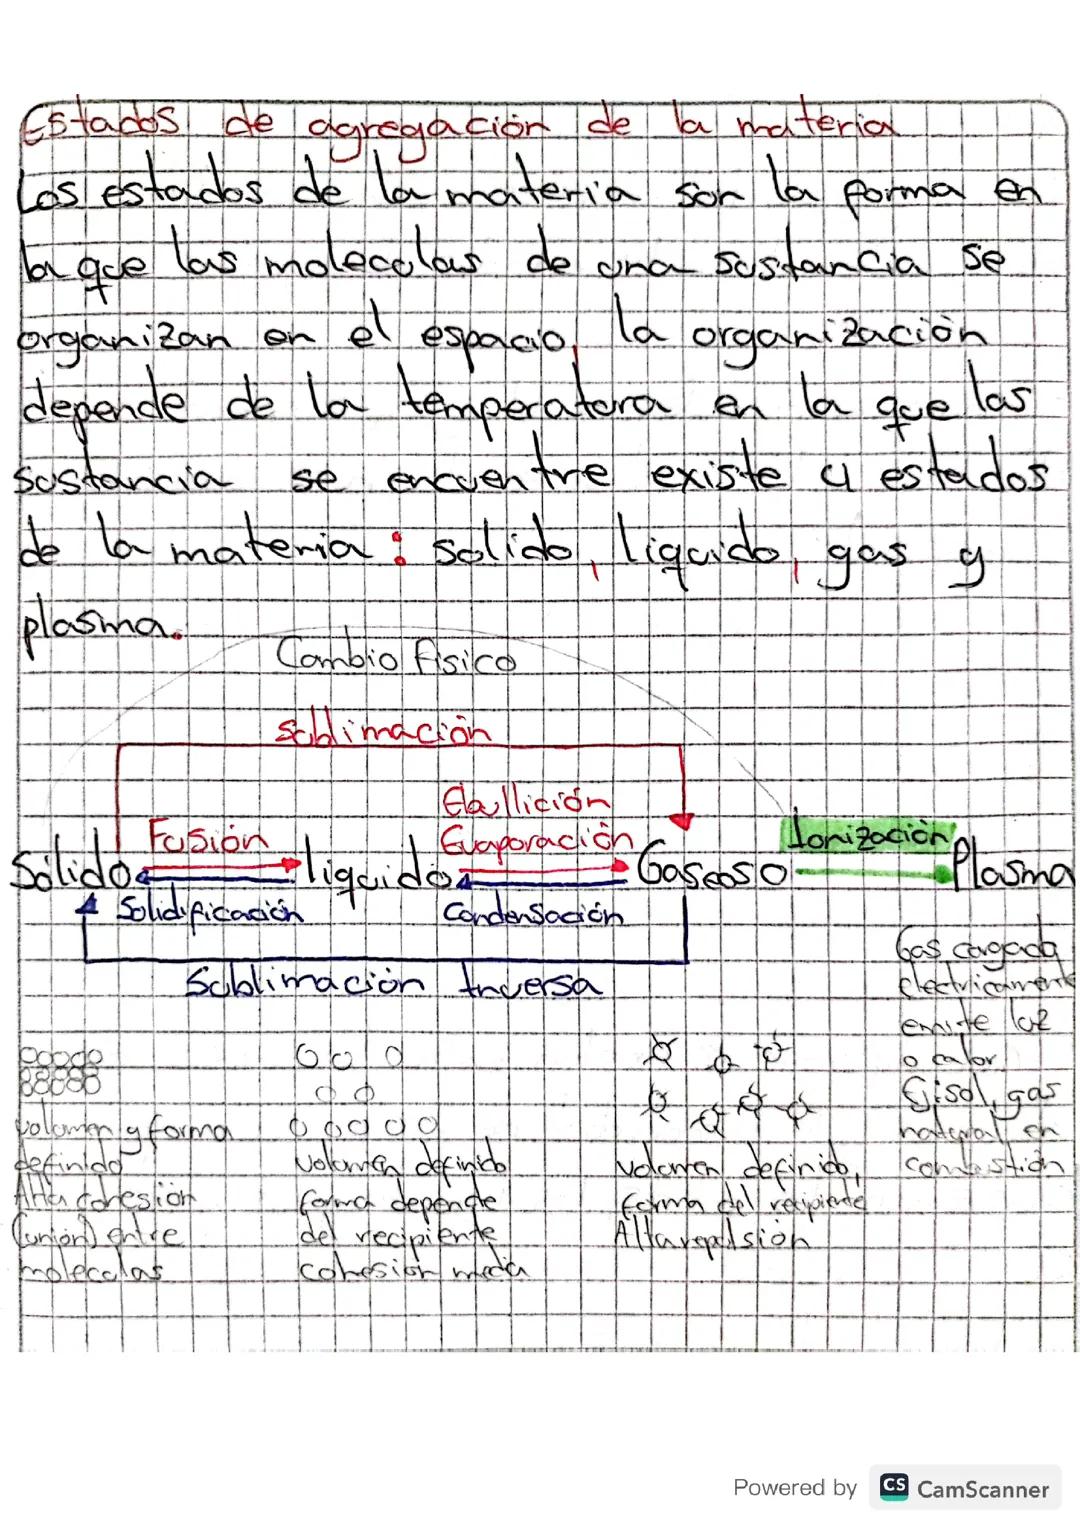 Estados de agregación de la materia
Los estados de la materia son la forma en
la que las moleculas de una sustancia se
organizan en el espacio, la organización
depende de la temperatura en la que las
sustancia se encuentre existe 4 estados
de la materia: solido, liquido, gas y
plasma.
Cambio fisico
sublimación
Ebullición
Fusión Evaporación Ionización
Sólido liquido Gaseoso Plasma
Solidificación Condensación
Sublimación Inversa
Gas cargada
electricamente
emite luz
o calor
Ej sol, gas
natural en
combustión
volumen y forma
definido
Alta cohesión
(union) entre
moleculas
volumen definido
forma depende
del recipiente
cohesion media
volumen definido,
forma del recipiente
Alta repulsión
Powered by CS CamScanner